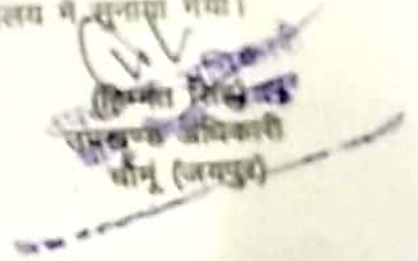 में सुनाया गया।
(हिम्मत सिंह)
उपखण्ड अधिकारी
चौमू (जयपुर)